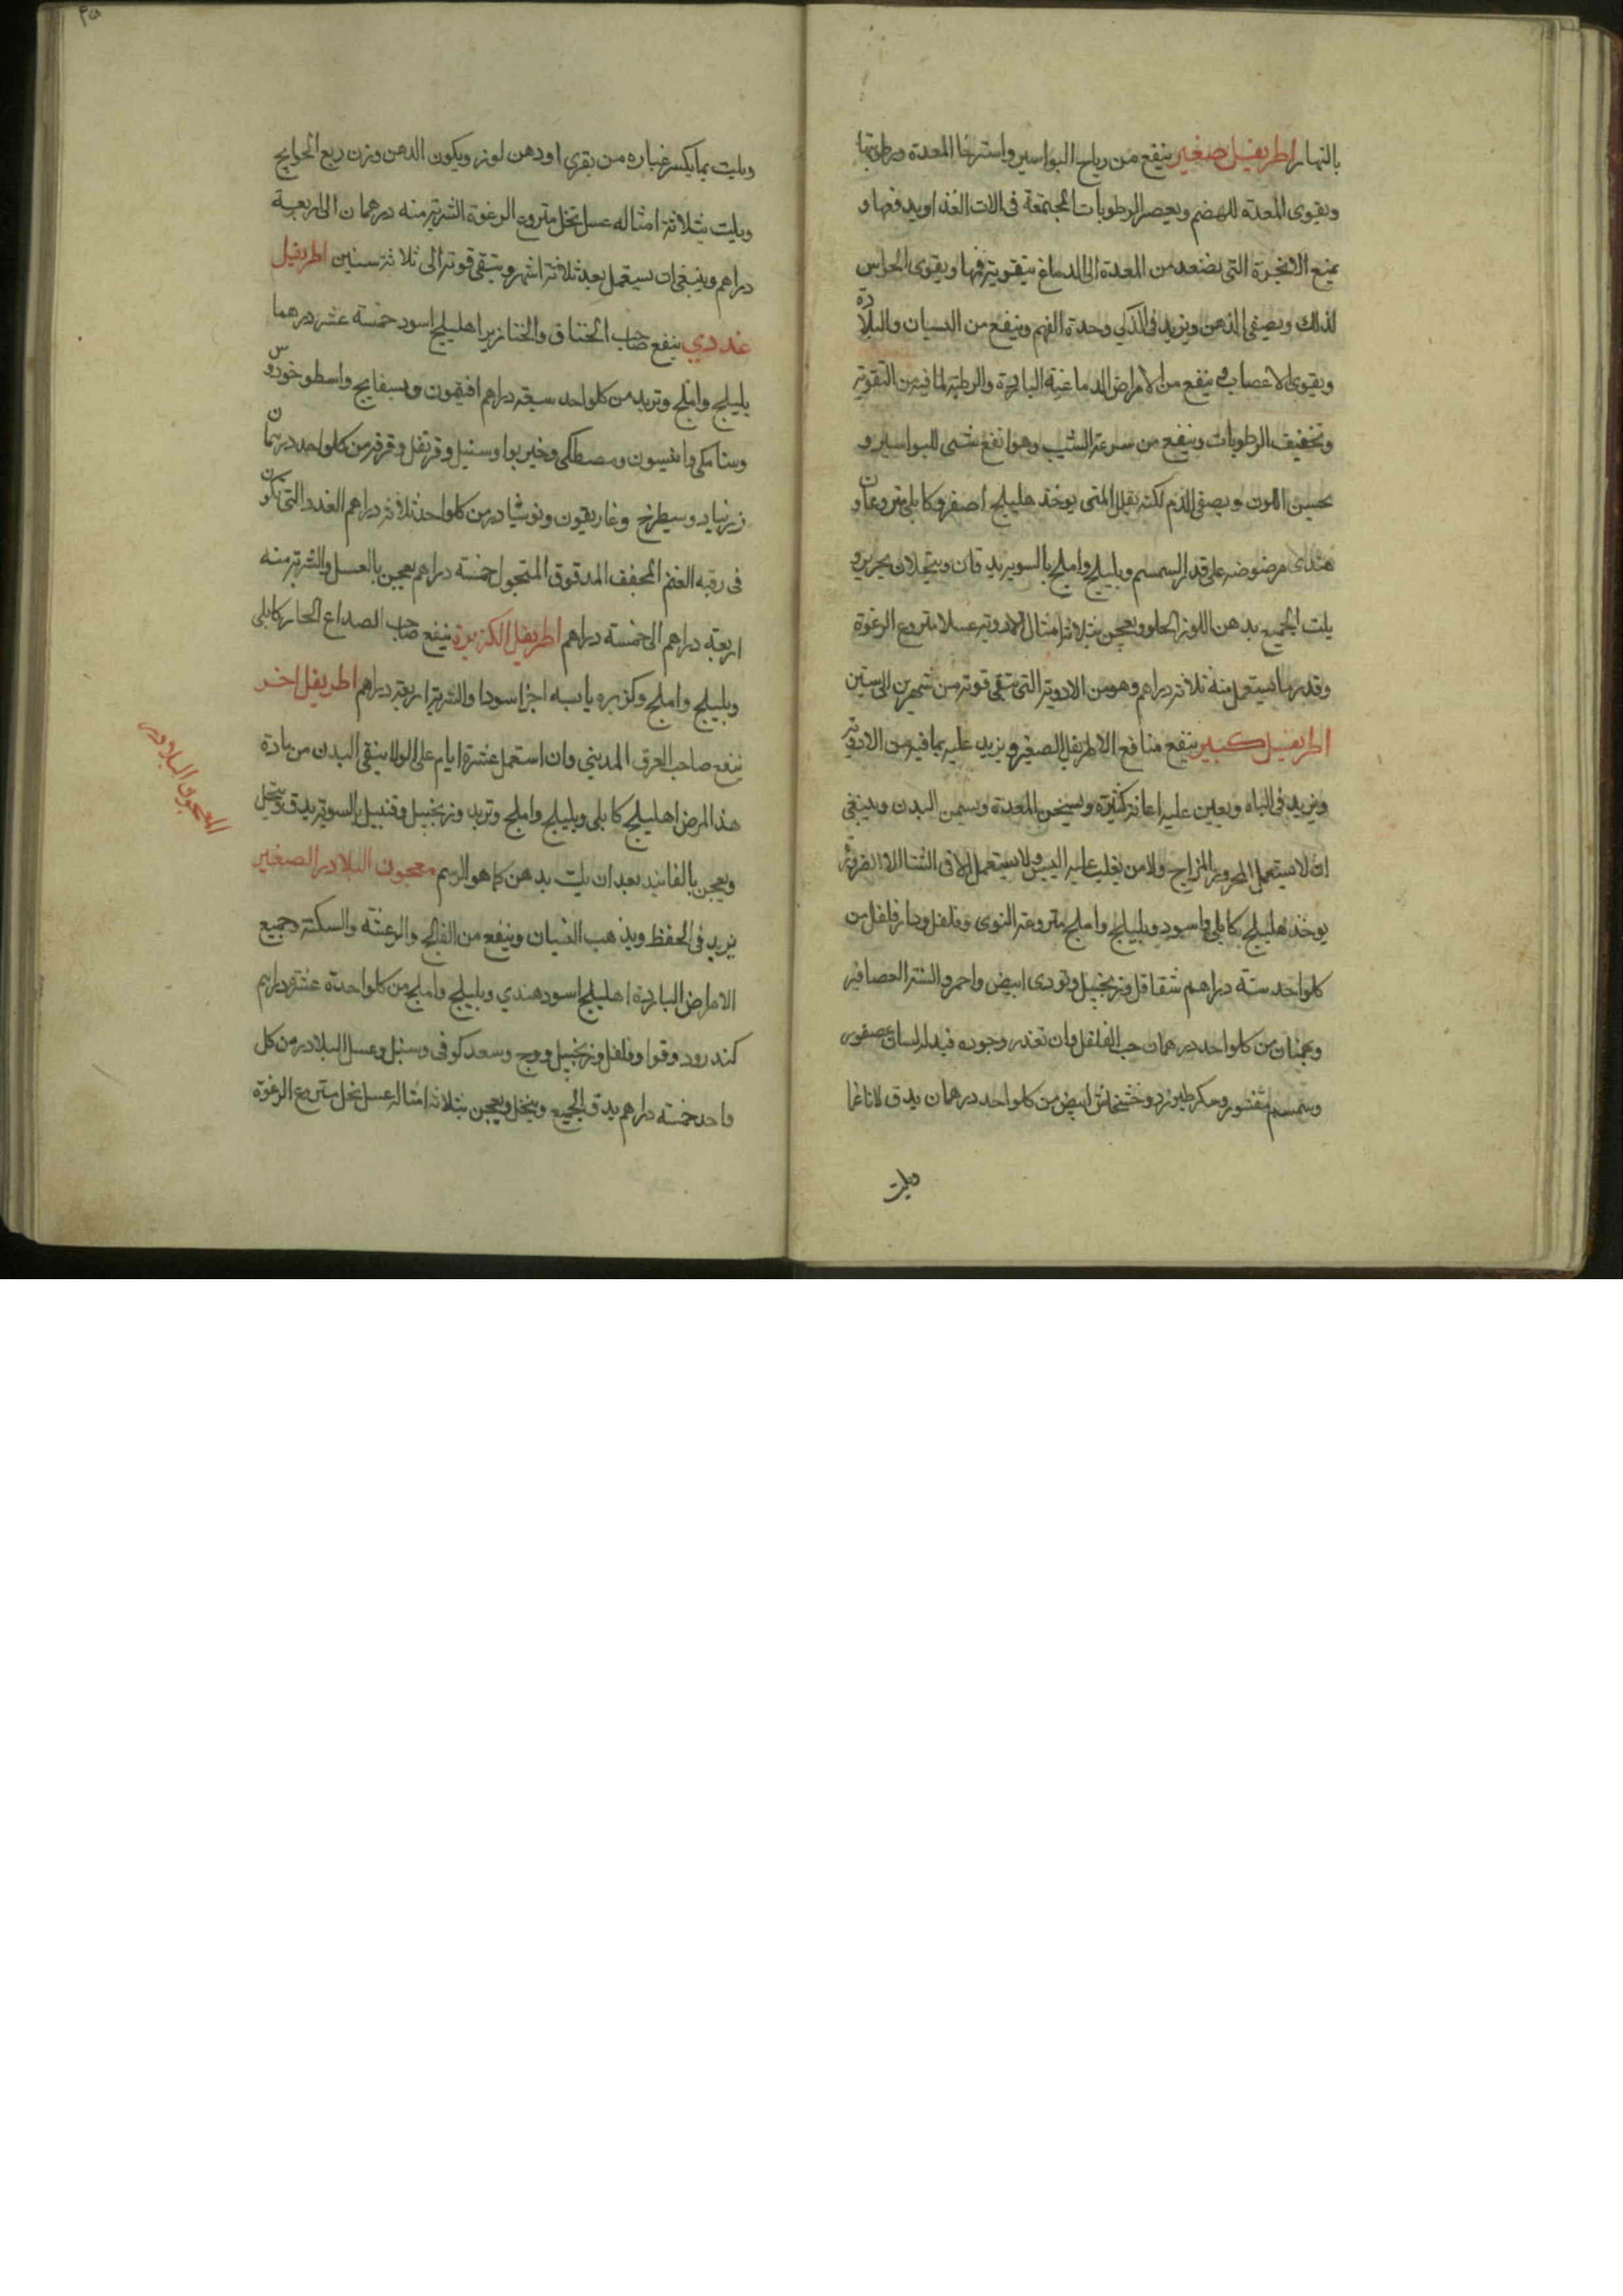 بالنهار اطريفيل صغير ينفع من رياح البواسير واسترخا المعدة ورطوبتها
ويقوى المعدة للهضم ويعصر الرطوبات المجتمعة فى الات الغذا ويدفعها و
يمنع الابخرة التى تصعد من المعدة الى الدماغ بتقويته فمها ويقوى الحواس
لذلك ويصفى الذهن ويزيد فى الذكى وحدة الفهم وينفع من النسيان والبلادة
ويقوى الاعصاب وينفع من الامراض الدماغية الباردة والرطبة لما فيه من التقوية
وتخفيف الرطوبات وينفع من سرعة الشيب وهو انفع شى للبواسير و
يحسن اللون ويصفى الدم لكنه يقلل المنى يوخذ هليلج اصفر وكابلى منزوعان و
هندى مرضوضه على قدر السمسم وبليلج واملج بالسويه يدقان وينخلان بحرير و
يلت الجميع بدهن اللوز الحلو ويعجن بثلاثة امثال الادوية عسلا منزوع الرغوة
وقدر ما يستعمل منه ثلاثة دراهم وهو من الادوية التى تبقى قوته من شهرين الى سنتين
اطريفيل كبير ينفع منافع الاطريفل الصغير ويزيد عليه بما فيه من الادوية
ويزيد فى الباه ويعين عليه اعانة كثيرة ويسخن المعدة ويسمن البدن وينبغى
ان لا يستعمل المحرور المزاج ولا من يغلب عليه اليبس ولا يستعمل الا فى الشتا الا لضرورة
يوخذ هليلج كابلى واسود وبليلج واملج منزوعة النوى وفلفل ودار فلفل من
كلواحد ستة دراهم شقاقل وزنجبيل وتودرى ابيض واحمر والسنة العصافير
وبهمنان من كلواحد درهمان حب الفلفل وان تعذر وجوده فبدله لسان عصفور
وسمسم مقشور وسكر طبرزد وخشخاش ابيض من كلواحد درهمان يدق لا ناعما
ويلت
ويلت بما يكسر غباره من بقرى او دهن لوز ويكون الدهن وزن ربع الحوايج
ويلت بثلاثة امثاله عسل نحل منزوع الرغوة الشربة منه درهمان الى اربعة
دراهم وينبغى ان يستعمل بعد ثلاثة اشهر ويبقى قوته الى ثلاثة سنين اطريفيل
غددي ينفع صاحب الخناق والخنازير اهليلج اسود خمسة عشر درهما
بليلج واملج وتربد من كلواحد سبعة دراهم افتيمون وبسفايج واسطوخودوس
وسنامكى وانيسون ومصطكى وخيربوا وسنبل وقرنفل وقرفه من كلواحد درهمان
زرنباد وسيطرج وغاريقون ونوشادر من كلواحد ثلاثة دراهم الغدد التى تكون
فى رقبه الغنم المجفف المدقوق المنخول خمسة دراهم يعجن بالعسل والشربة منه
اربعة دراهم الى خمسة دراهم اطريفل الكزبرة ينفع صاحب الصداع الحار كابلى
وبليلج واملج وكزبره يابسه اجزا سودا والشربة اربعة دراهم اطريفل اخر
ينفع صاحب العرق المديني وان استعمل عشرة ايام على الولا ينقى البدن من مادة
هذا المرض اهليلج كابلى وبليلج واملج وتربد وزنجبيل وقنبيل بالسوية يدق وينخل
ويعجن بالفانيد بعد ان يلت بدهن كما هو الرسم معجون البلادر الصغير
يزيد فى الحفظ ويذهب النسيان وينفع من الفالج والرعشه والسكتة وجميع
الامراض الباردة اهليلج اسود هندي وبليلج واملج من كلواحدة عشرة دراهم
كندر ود وقوا وفلفل وزنجبيل ووج وسعد كوفى وسنبل وعسل البلادر من كل
واحد خمسة دراهم يدق الجميع وينخل ويعجن بثلاثة امثاله عسل نحل منزوع الرغوة
المعجون البلادر